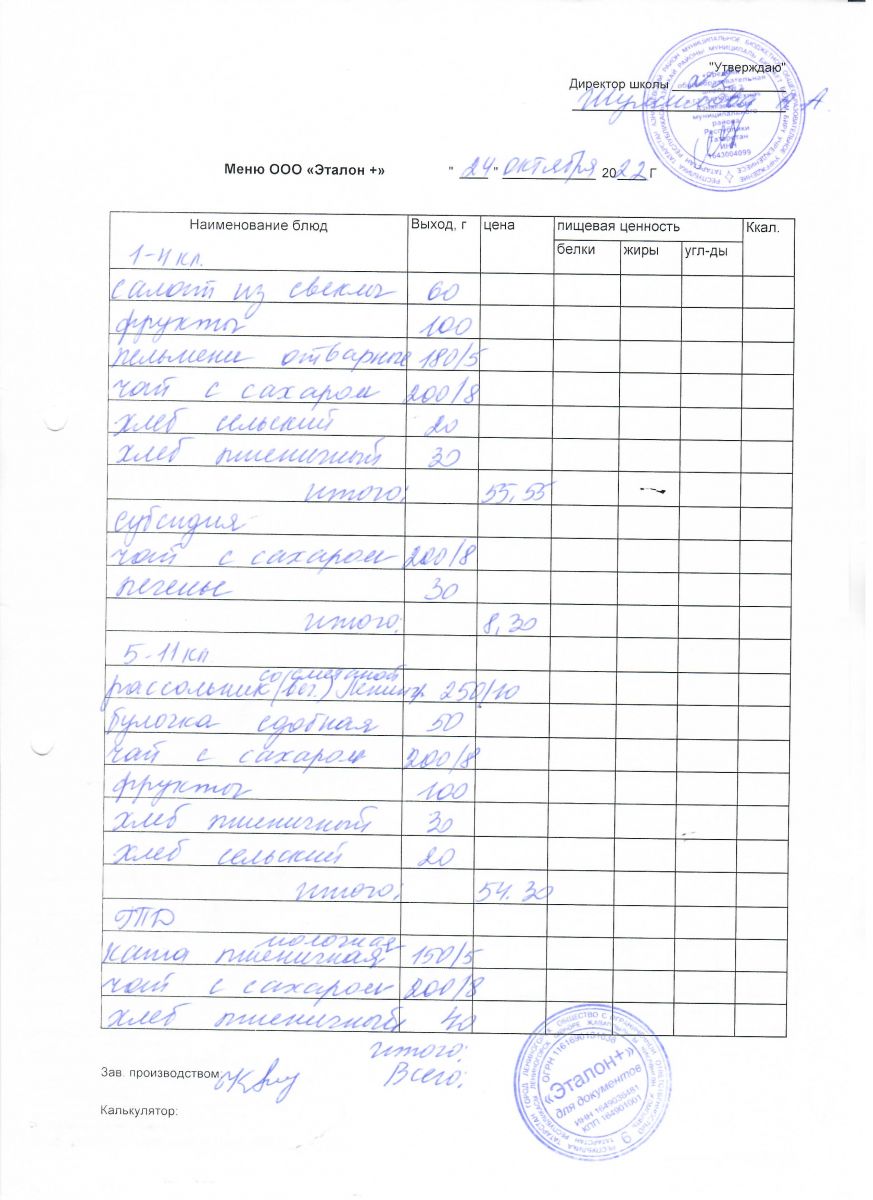 "Утверждаю"
Директор школы
Меню ООО «Эталон +»
" 24 " октября 2022 г
Наименование блюд Выход, г цена пищевая ценность Ккал.
белки жиры угл-ды
1-4 кл.
салат из свеклы 60
фрукты 100
пельмени отварные 180/5
чай с сахаром 200/8
хлеб сельский 20
хлеб пшеничный 30
итого: 55,55
субсидия
чай с сахаром 200/8
печенье 30
итого: 8,30
5-11 кл
со сметаной
рассольник (вег.) Ленингр 250/10
булочка сдобная 50
чай с сахаром 200/8
фрукты 100
хлеб пшеничный 30
хлеб сельский 20
итого: 54.30
ГПД
молочная
каша пшеничная 150/5
чай с сахаром 200/8
хлеб пшеничный 40
итого:
Зав. производством: Всего:
Калькулятор:
«Эталон+»
для документов
ИНН 1649036481
КПП 164901001